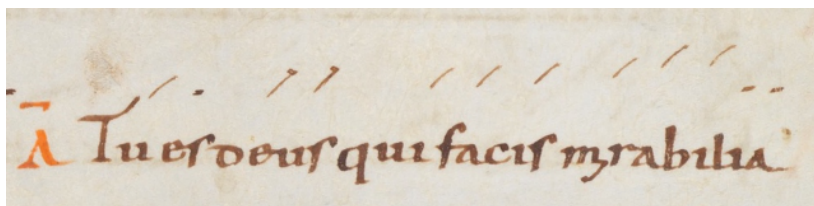 Ā Tu es deus qui facis mirabilia